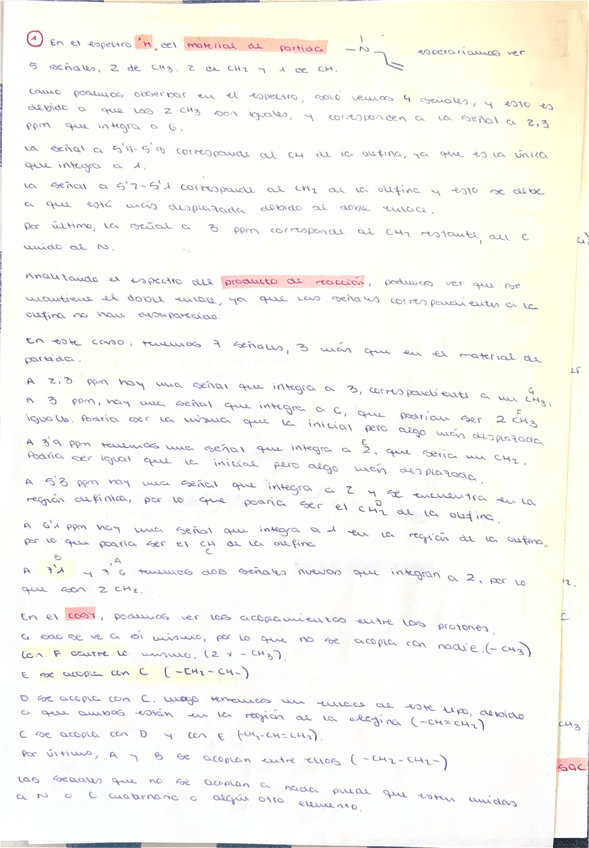 ① En el espectro ¹H del material de partida esperaríamos ver
N
5 señales, 2 de CH₃, 2 de CH₂ y 1 de CH.
Como podemos observar en el espectro, solo vemos 4 señales, y esto es
debido a que los 2 CH₃ son iguales, y corresponden a la señal a 2,3
ppm que integra a 6.
La señal a 5'7-5'9 corresponde al CH de la olefina, ya que es la única
que integra a 1.
La señal a 5'2-5'1 corresponde al CH₂ de la olefina y esto se debe
a que está más desplazada debido al doble enlace.
Por último, la señal a 3 ppm corresponde al CH₂ restante, del C
unido al N.
Analizando el espectro del producto de reacción, podemos ver que se
mantiene el doble enlace, ya que las señales correspondientes a la
olefina no han desaparecido.
En este caso, tenemos 7 señales, 3 más que en el material de
partida.
A 2,3 ppm hay una señal que integra a 3, correspondiente a un CH₃. G
A 3 ppm, hay una señal que integra a 6, que podrían ser 2 CH₃ F
iguales. Podría ser la misma que la inicial pero algo más desplazada
A 3'9 ppm tenemos una señal que integra a 2, que sería un CH₂. E
Podría ser igual que la inicial pero algo más desplazada.
A 5'3 ppm hay una señal que integra a 2 y se encuentra en la
región olefínica, por lo que podría ser el CH₂ de la olefina. D
A 6'1 ppm hay una señal que integra a 1 en la región de la olefina,
por lo que podría ser el CH de la olefina
C
B A
A 7'1 y 7'6 tenemos dos señales nuevas que integran a 2, por lo
que son 2 CH₂.
En el COSY, podemos ver los acoplamientos entre los protones.
G solo se ve a sí mismo, por lo que no se acopla con nadie. (-CH₃)
Con F ocurre lo mismo. (2 x -CH₃).
E se acopla con C (-CH₂-CH-)
D se acopla con C. Luego tenemos un enlace de este tipo, debido
a que ambos están en la región de la olefina (-CH=CH₂)
C se acopla con D y con E (-CH₂-CH=CH₂).
Por último, A y B se acoplan entre ellos (-CH₂-CH₂-)
Las señales que no se acoplan a nada puede que estén unidas
a N o C cuaternario o algún otro elemento.
CH₃
SQC